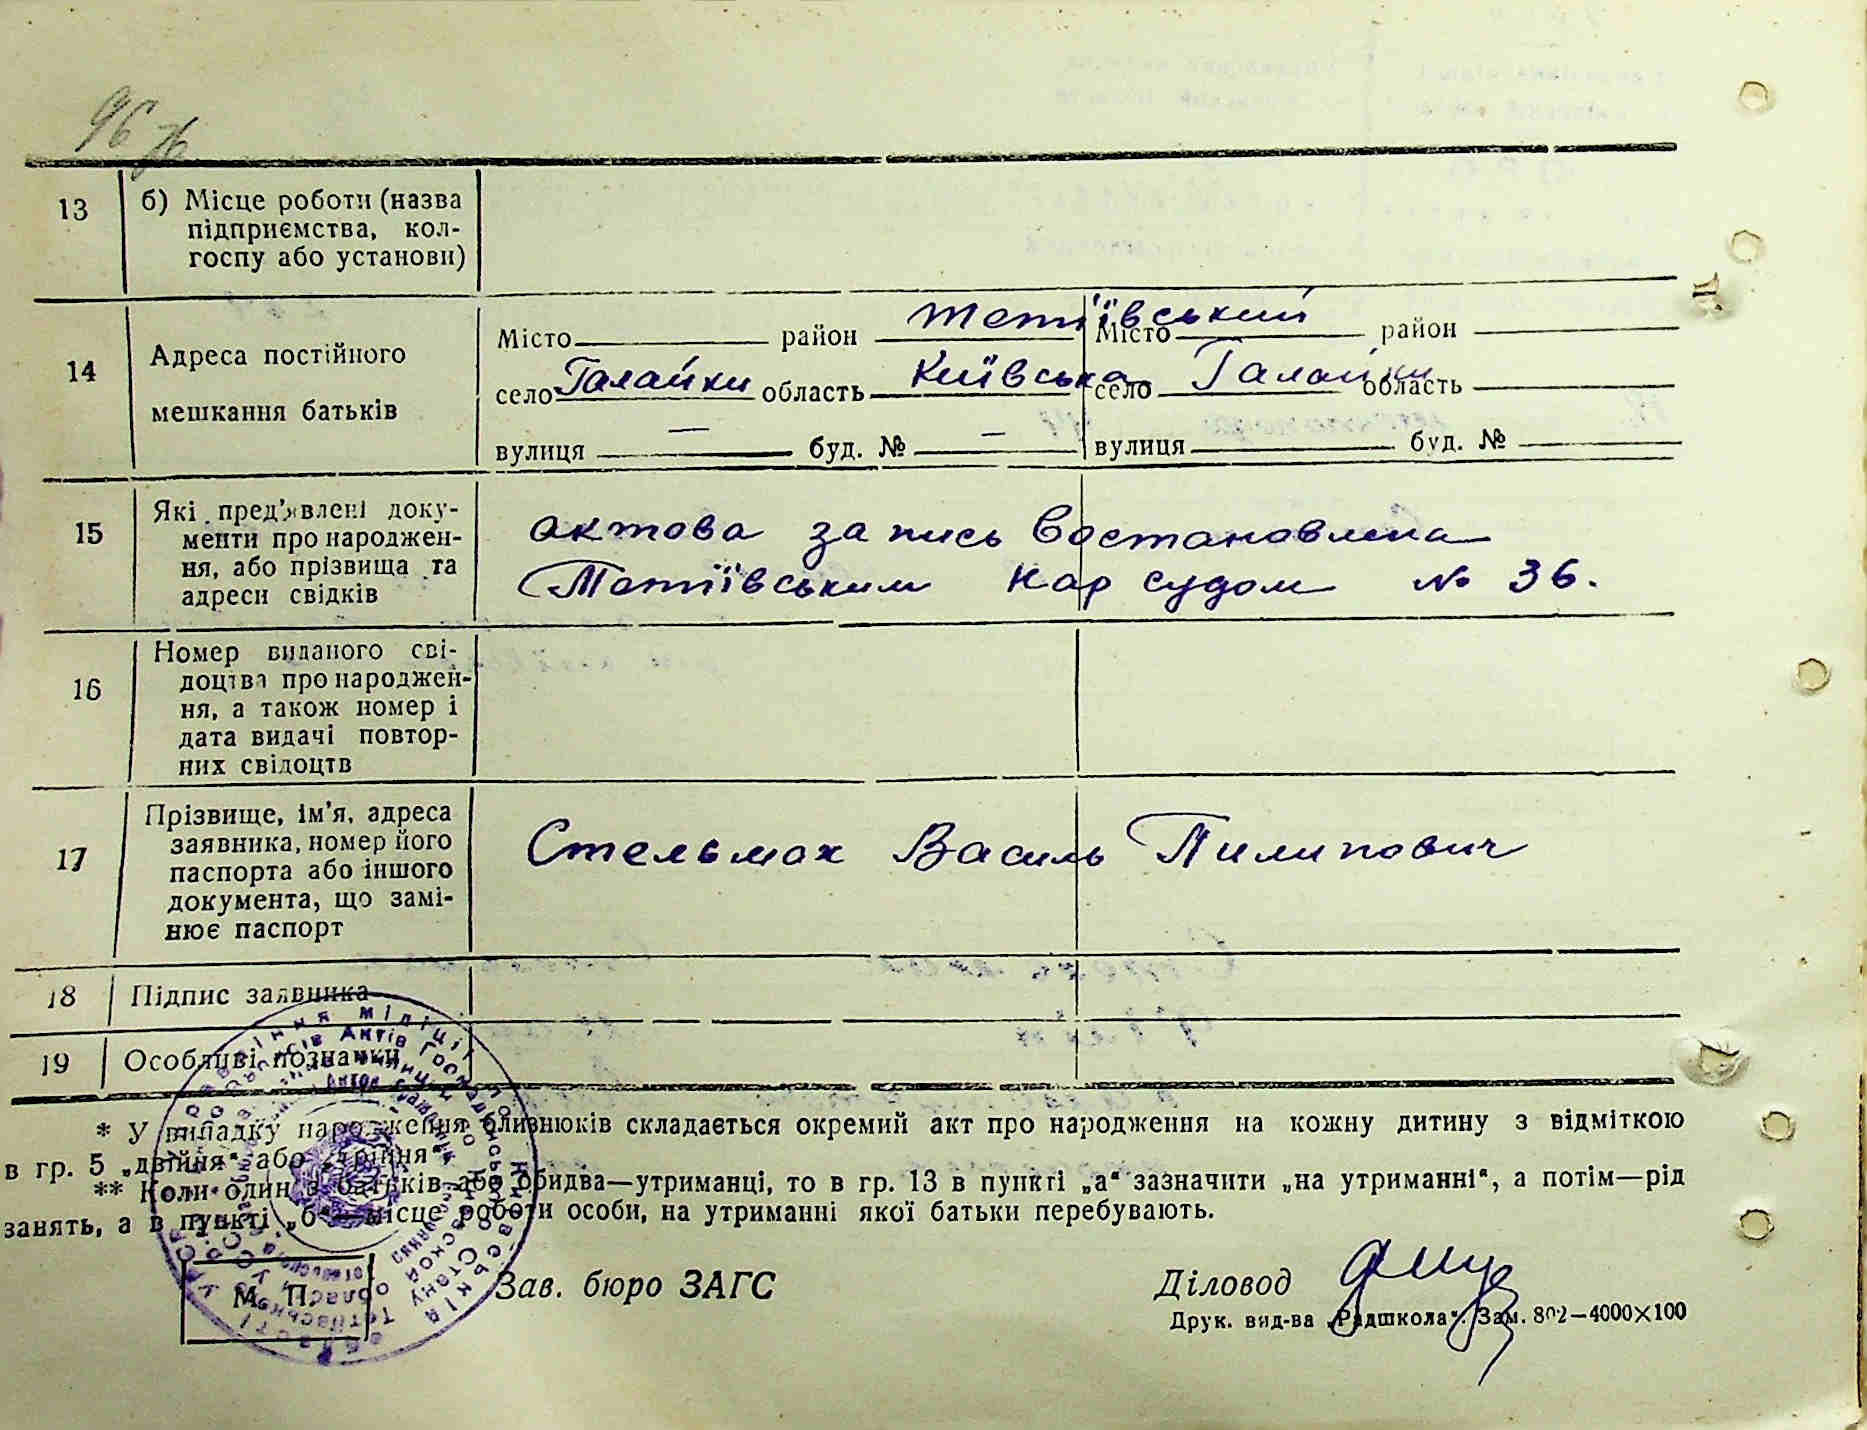 96
13 б) Місце роботи (назва
підприємства, кол-
госпу або установи)
14 Адреса постійного
мешкання батьків
Місто район Тетіївський Місто район
село Галайки область Київська село Галайки область
вулиця — буд. № — вулиця буд. №
15 Які пред'явлені доку-
менти про народжен-
ня, або прізвища та
адреси свідків
актова запись востановлена
Тетіївським нар судом № 36.
16 Номер виданого сві-
доцтва про народжен-
ня, а також номер і
дата видачі повтор-
них свідоцтв
17 Прізвище, ім'я, адреса
заявника, номер його
паспорта або іншого
документа, що замі-
нює паспорт
Стельмах Василь Пилипович
18 Підпис заявника
19 Особливі познаьки
* У випадку народження близнюків складається окремий акт про народження на кожну дитину з відміткою
в гр. 5 „двійня“ або „трійня“.
** Коли один з батьків або обидва—утриманці, то в гр. 13 в пункті „а“ зазначити „на утриманні“, а потім—рід
занять, а в пункті „б“—місце роботи особи, на утриманні якої батьки перебувають.
М. П. Зав. бюро ЗАГС Діловод
Друк. вид-ва „Радшкола“. Зам. 802—4000×100